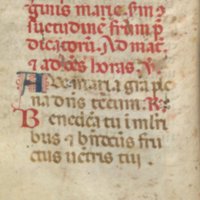 guinis marie sim z
suetudinē fratrum p
dicatorū. Ad mat
z ad oēs horas. V.
Aue maria gra ple
na dn̄s tecum. R.
Benedicta tu in mli
bus z bn̄dictus fru
ctus uentris tui